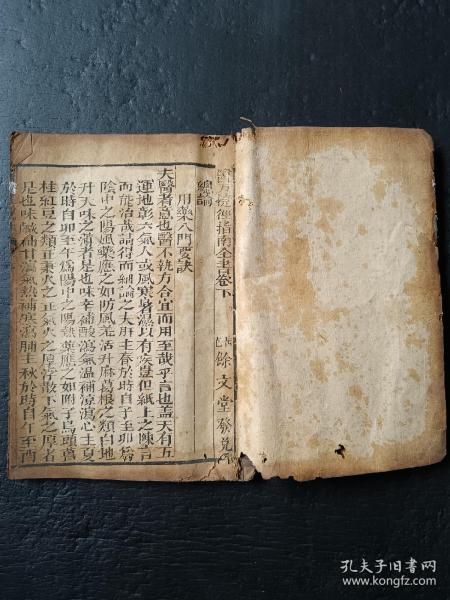 醫方捷徑指南全書卷下
餘文堂發兌
總論
用藥八門要訣
夫醫者意也醫不執方合宜而用至哉乎言也蓋天有五
運地彰六氣人或風寒暑濕以有疾豈但紙上之陳言
而能活哉請得而細論之夫肝主春於時自子至卯為
陰中之陽風藥應之如防風羗活升麻葛根之類自地
升天味之薄者是也味辛補酸瀉氣溫補涼瀉心主夏
於時自卯至午為陽中之陽熱藥應之如附子烏頭薑
桂紅豆之類正秉火之正氣火之厚浮散下氣之厚者
是也味鹹補甘瀉氣熱補寒瀉肺主秋於時自午至酉
孔夫子旧书网
www.kongfz.com